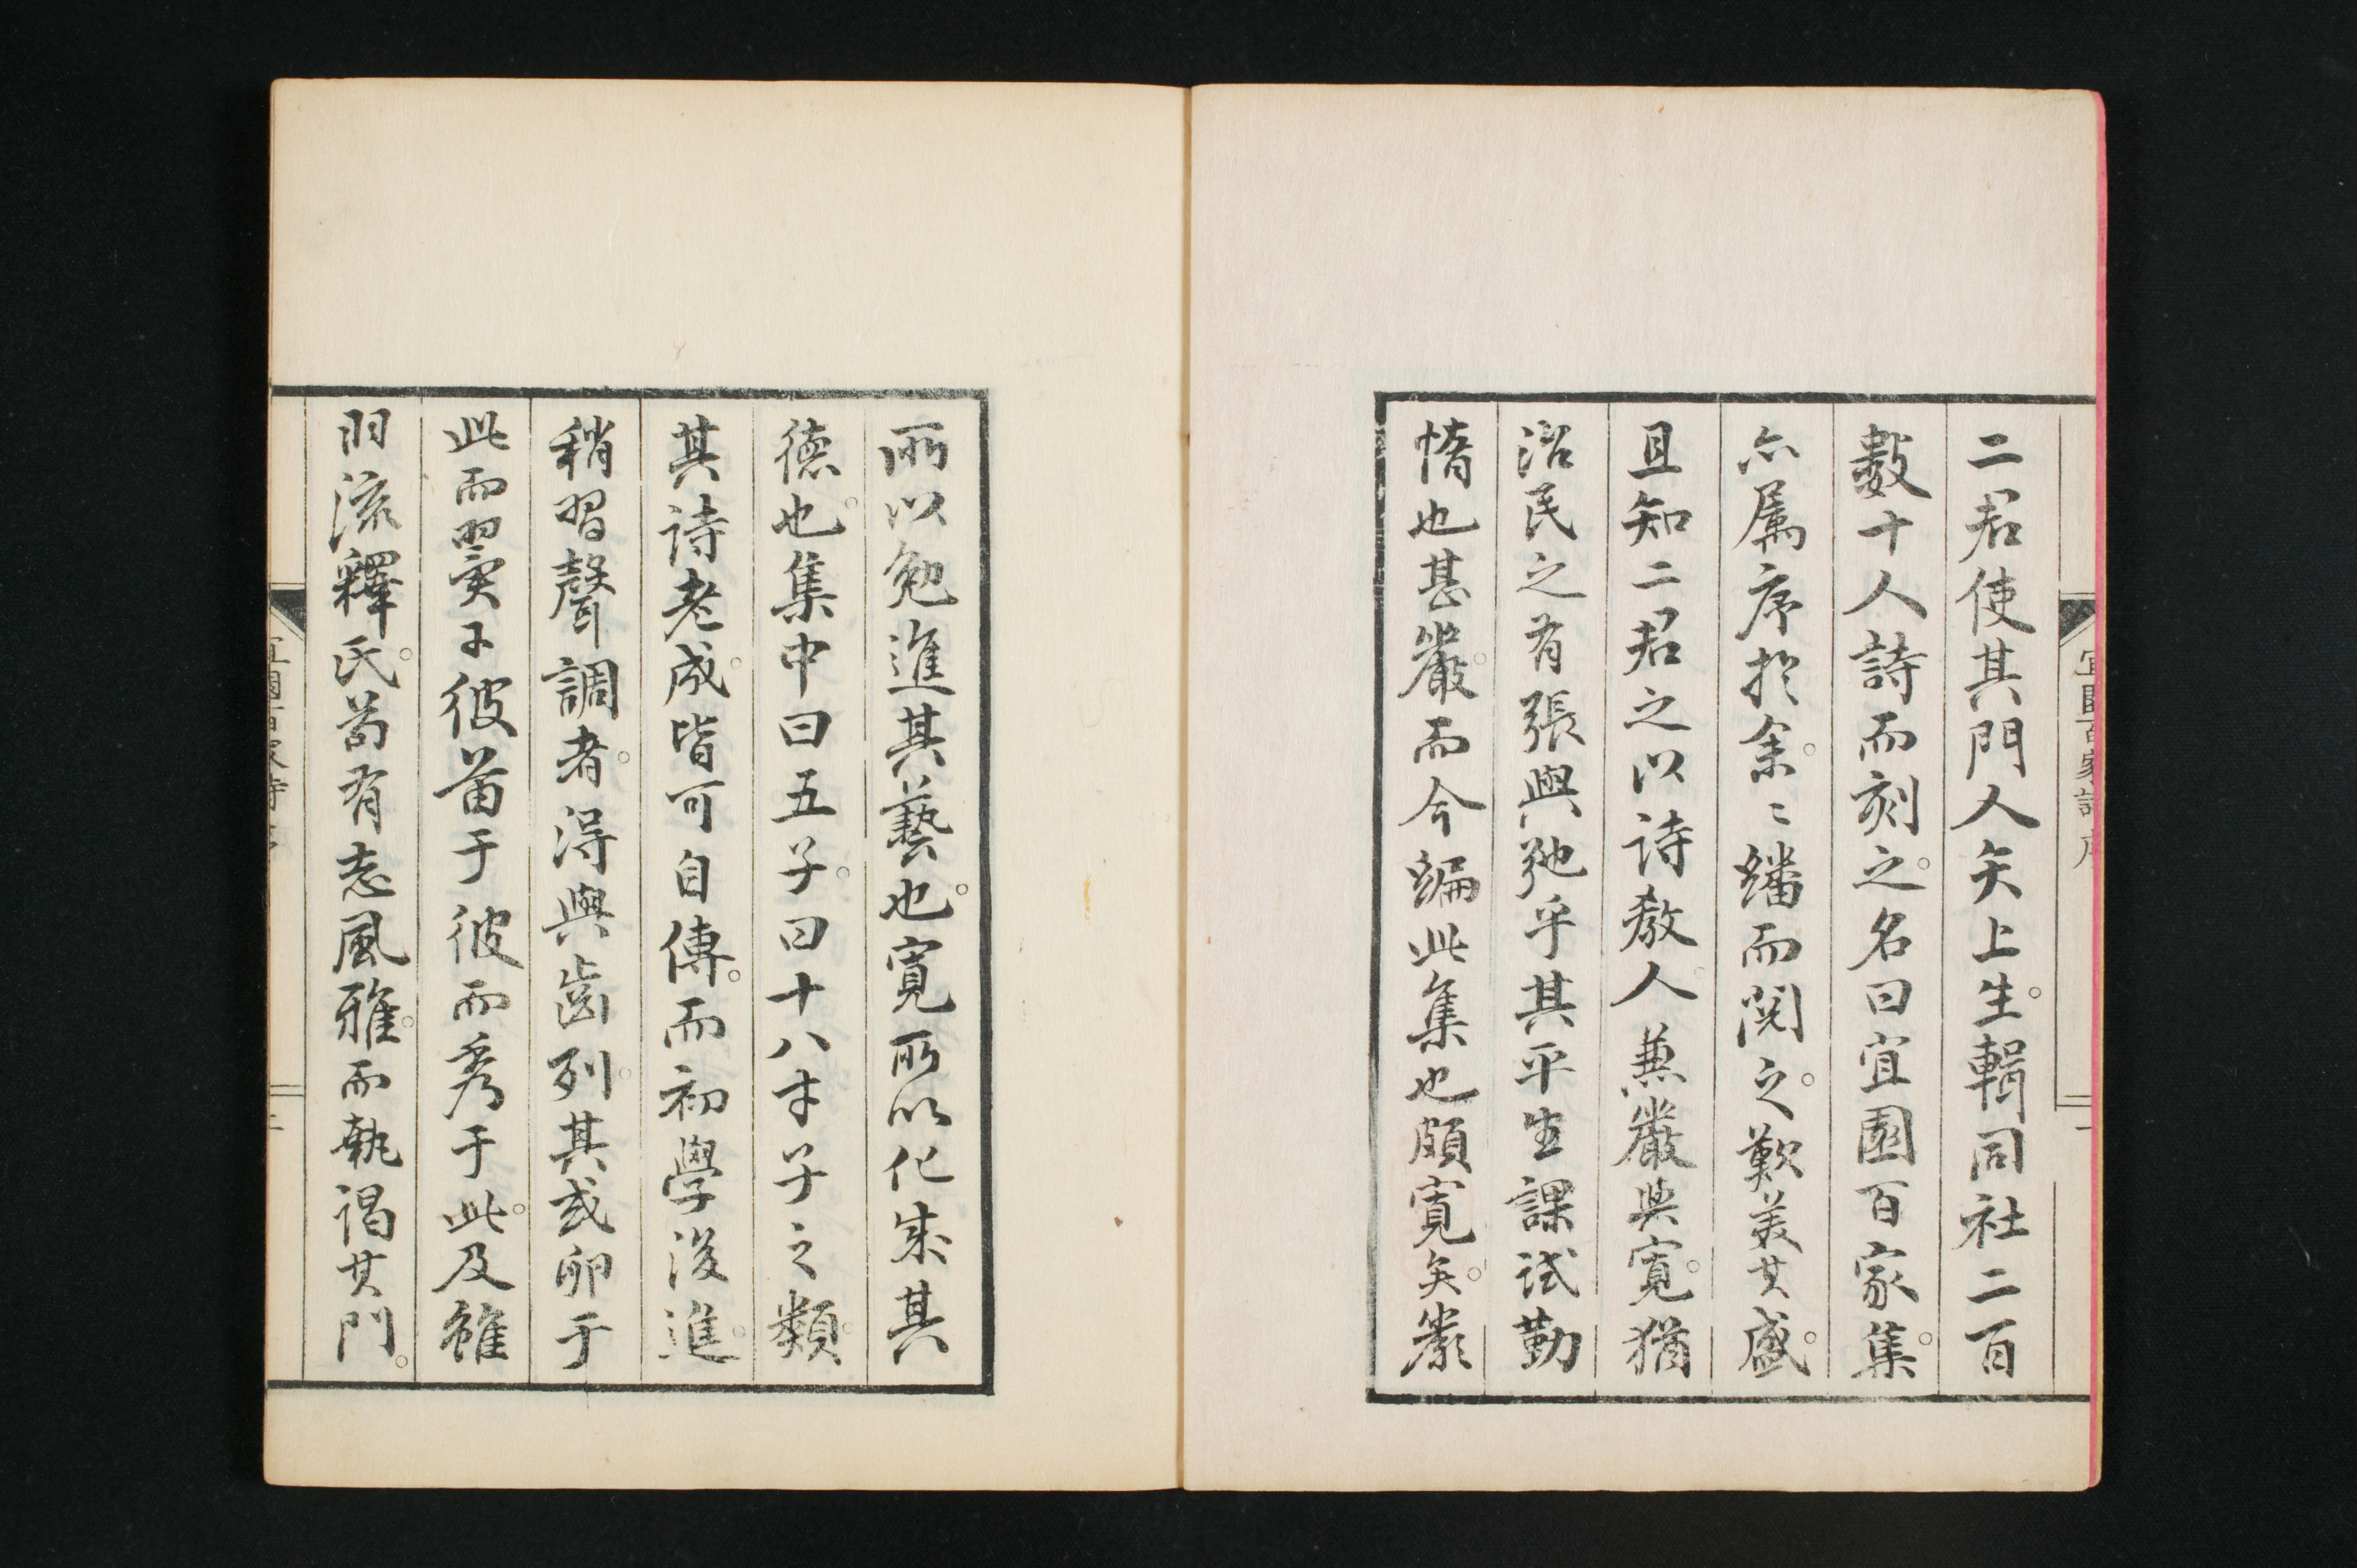 二君使其門人矢上生。輯同社二百
數十人詩而刻之。名曰宜園百家集。
亦属序於余。〻繙而閲之。歎美其盛。
且知二君之以詩教人。兼嚴與寛。猶
治民之有張與弛乎其平生課試勤
惰也甚嚴。而今編此集也頗寛矣。嚴
所以勉進其藝也。寛所以化成其
徳也。集中曰五子。曰十八才子之類。
其詩老成。皆可自傳。而初學後進。
稍習聲調者。得與齒列。其或卯于
此而翼于彼苗于彼而秀于此。及雖
羽流釋氏。苟有志風雅。而執謁其門。